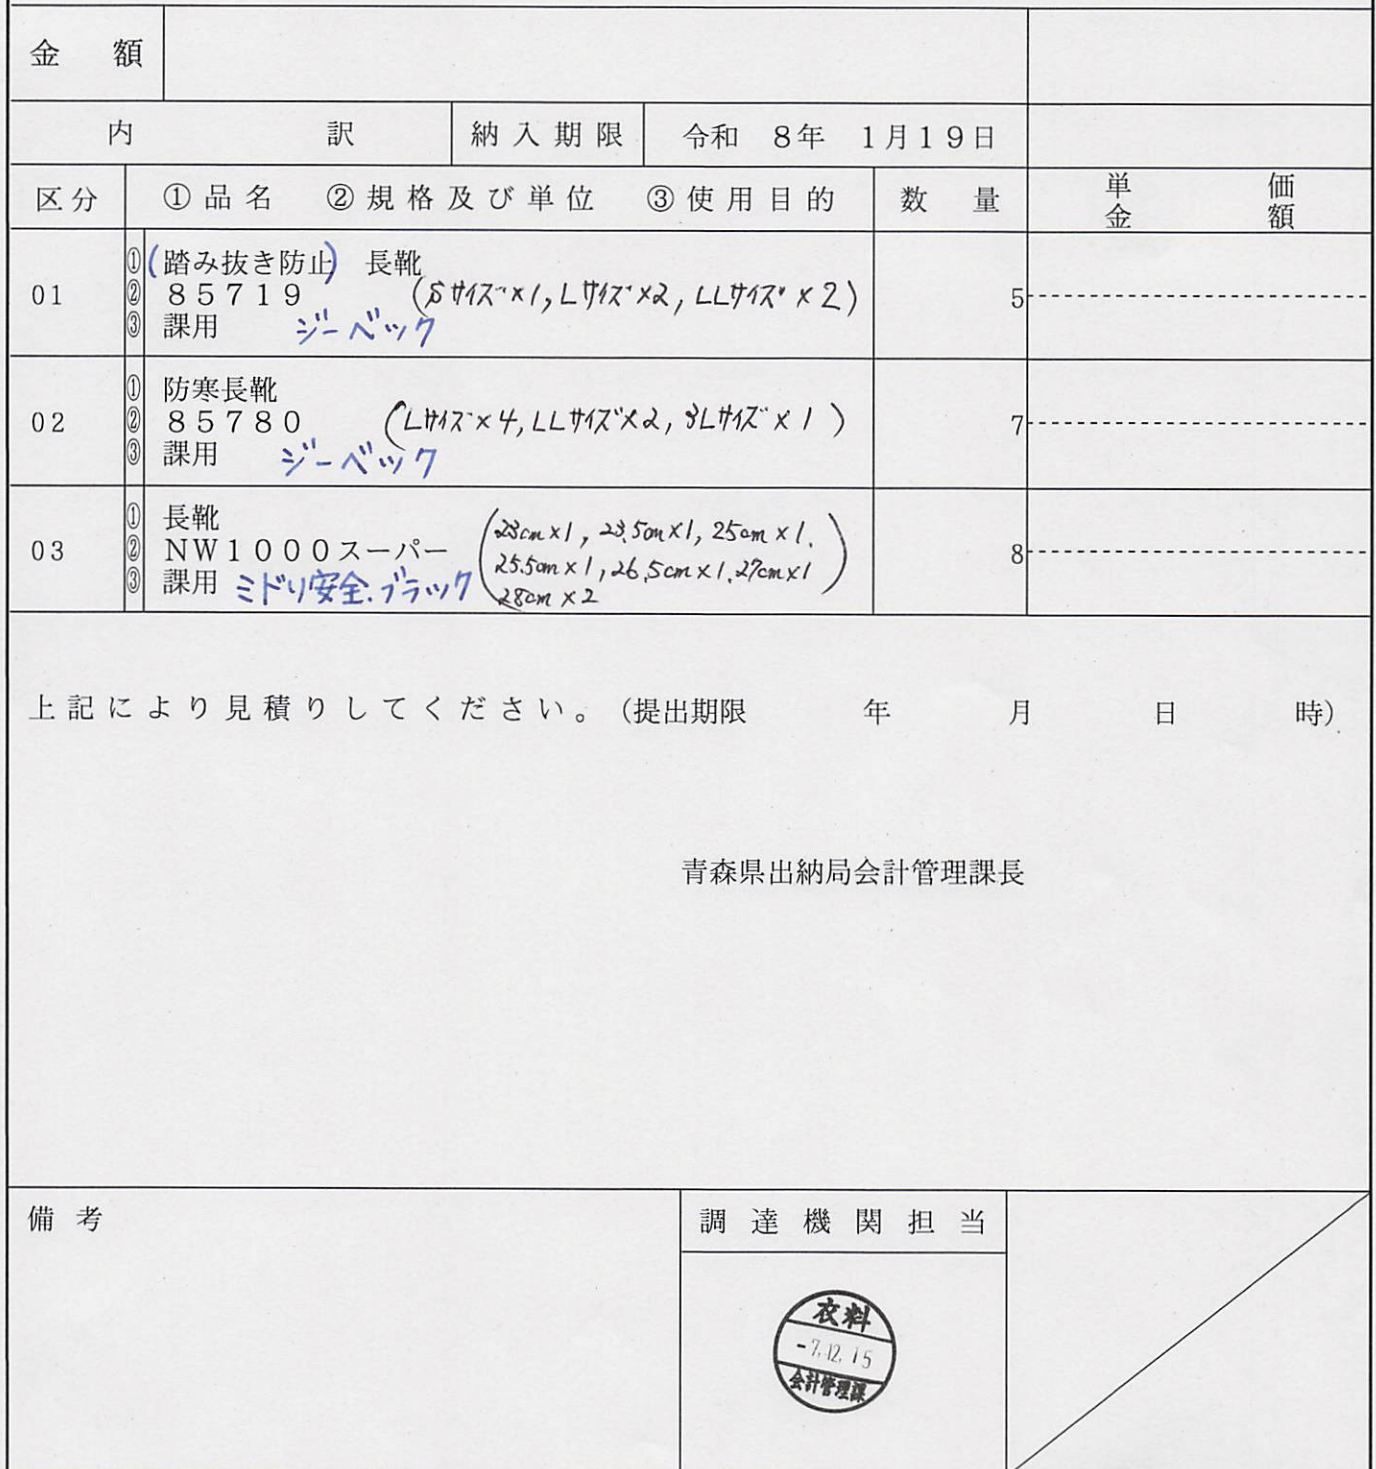 金 額
内 訳 納入期限 令和 8年 1月19日
区分 ①品名 ②規格及び単位 ③使用目的 数 量 単 価
金 額
① (踏み抜き防止) 長靴
01 ② 85719 (Sサイズ×1, Lサイズ×2, LLサイズ×2) 5
③ 課用 ジーベック
① 防寒長靴
02 ② 85780 (Lサイズ×4, LLサイズ×2, 3Lサイズ×1) 7
③ 課用 ジーベック
① 長靴 23cm×1, 23.5cm×1, 25cm×1.
03 ② NW1000スーパー 25.5cm×1, 26.5cm×1. 27cm×1 8
③ 課用 ミドリ安全.ブラック 28cm×2
上記により見積りしてください。(提出期限 年 月 日 時)
青森県出納局会計管理課長
備考 調達機関担当
衣料
-7.12.15
会計管理課